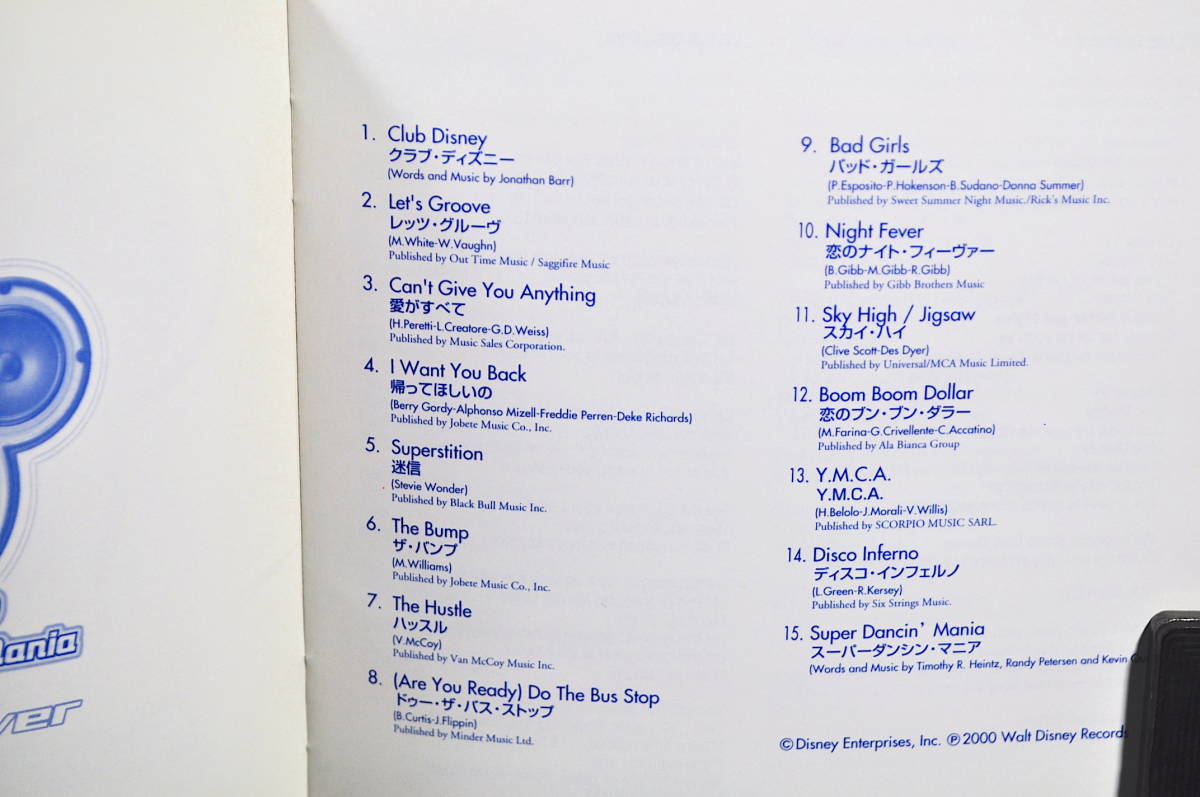 1. Club Disney
クラブ・ディズニー
(Words and Music by Jonathan Barr)
2. Let's Groove
レッツ・グルーヴ
(M.White-W.Vaughn)
Published by Out Time Music / Saggifire Music
3. Can't Give You Anything
愛がすべて
(H.Peretti-L.Creatore-G.D.Weiss)
Published by Music Sales Corporation.
4. I Want You Back
帰ってほしいの
(Berry Gordy-Alphonso Mizell-Freddie Perren-Deke Richards)
Published by Jobete Music Co., Inc.
5. Superstition
迷信
(Stevie Wonder)
Published by Black Bull Music Inc.
6. The Bump
ザ・バンプ
(M.Williams)
Published by Jobete Music Co., Inc.
7. The Hustle
ハッスル
(V.McCoy)
Published by Van McCoy Music Inc.
8. (Are You Ready) Do The Bus Stop
ドゥー・ザ・バス・ストップ
(B.Curtis-J.Flippin)
Published by Minder Music Ltd.
9. Bad Girls
バッド・ガールズ
(P.Esposito-P.Hokenson-B.Sudano-Donna Summer)
Published by Sweet Summer Night Music./Rick's Music Inc.
10. Night Fever
恋のナイト・フィーヴァー
(B.Gibb-M.Gibb-R.Gibb)
Published by Gibb Brothers Music
11. Sky High / Jigsaw
スカイ・ハイ
(Clive Scott-Des Dyer)
Published by Universal/MCA Music Limited.
12. Boom Boom Dollar
恋のブン・ブン・ダラー
(M.Farina-G.Crivellente-C.Accatino)
Published by Ala Bianca Group
13. Y.M.C.A.
Y.M.C.A.
(H.Belolo-J.Morali-V.Willis)
Published by SCORPIO MUSIC SARL.
14. Disco Inferno
ディスコ・インフェルノ
(L.Green-R.Kersey)
Published by Six Strings Music.
15. Super Dancin' Mania
スーパーダンシン・マニア
(Words and Music by Timothy R. Heintz, Randy Petersen and Kevin
©Disney Enterprises, Inc. ℗2000 Walt Disney Records